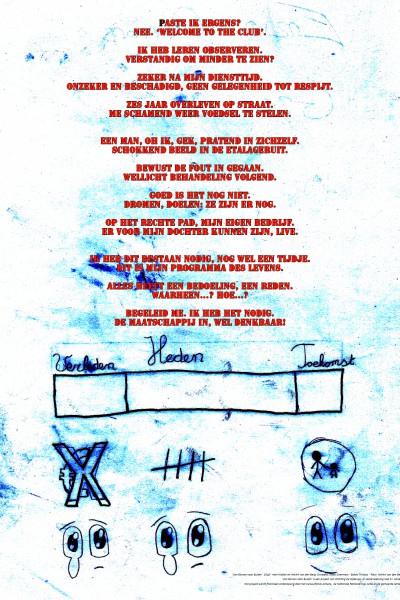 PASTE IK ERGENS?
NEE. 'WELCOME TO THE CLUB'.
IK HEB LEREN OBSERVEREN.
VERSTANDIG OM MINDER TE ZIEN?
ZEKER NA MIJN DIENSTTIJD.
ONZEKER EN BESCHADIGD, GEEN GELEGENHEID TOT RESPIJT.
ZES JAAR OVERLEVEN OP STRAAT.
ME SCHAMEND WEER VOEDSEL TE STELEN.
EEN MAN, OH IK, GEK, PRATEND IN ZICHZELF.
SCHOKKEND BEELD IN DE ETALAGERUIT.
BEWUST DE FOUT IN GEGAAN.
WELLICHT BEHANDELING VOLGEND.
GOED IS HET NOG NIET.
DROMEN, DOELEN: ZE ZIJN ER NOG.
OP HET RECHTE PAD, MIJN EIGEN BEDRIJF.
ER VOOR MIJN DOCHTER KUNNEN ZIJN, LIVE.
IK HEB DIT BESTAAN NODIG, NOG WEL EEN TIJDJE.
DIT IS MIJN PROGRAMMA DES LEVENS.
ALLES HEEFT EEN BEDOELING, EEN REDEN.
WAARHEEN...? HOE...?
BEGELEID ME. IK HEB HET NODIG.
DE MAATSCHAPPIJ IN, WEL DENKBAAR!
Verleden Heden Toekomst